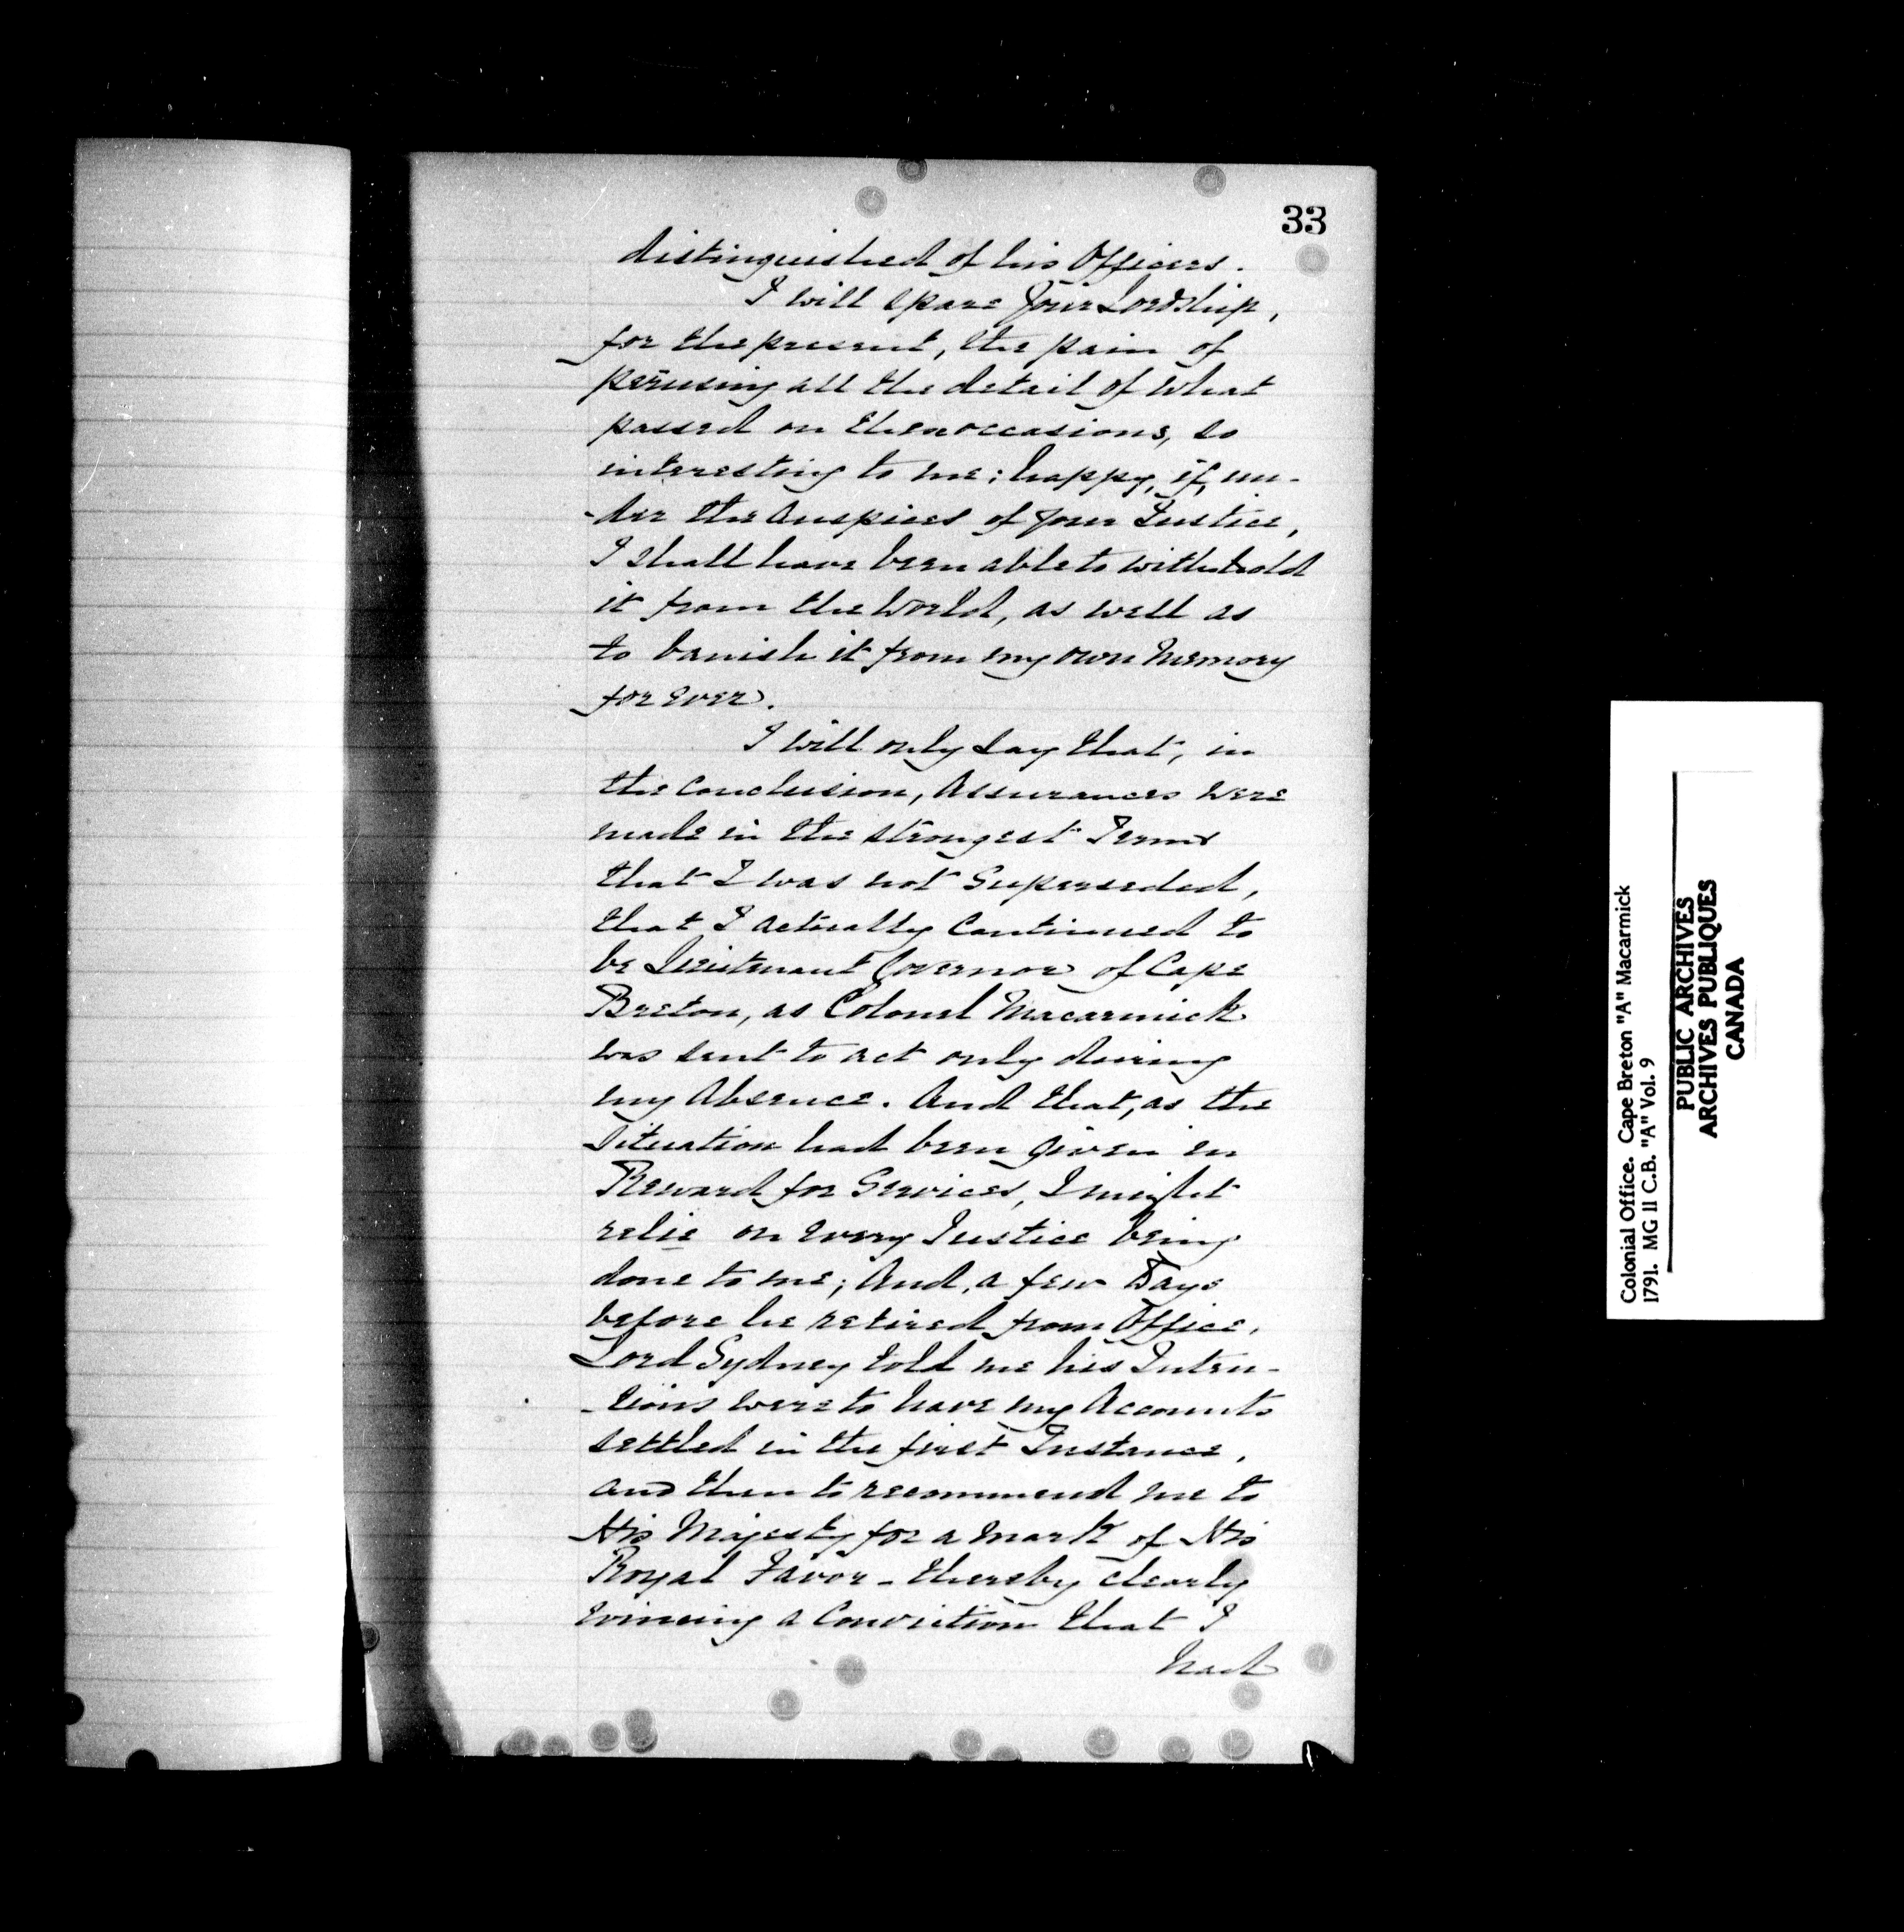 33
distinguished of his Officers.
I will spare your Lordship,
for the present, the pain of
perusing all the detail of what
passed on these occasions, so
interesting to me; happy, if, un-
-der the Auspices of your Justice,
I shall have been able to withhold
it from the World, as well as
to banish it from my own Memory
for ever.
I will only say that, in
the conclusion, Assurances were
made in the strongest Terms
that I was not Superseded,
that I actually continued to
be Lieutenant Governor of Cape
Breton, as Colonel Macarmick
was sent to act only during
my Absence. And that, as the
Situation had been given in
Reward for Services, I might
relie on every Justice being
done to me; And, a few Days
before he retired from Office,
Lord Sydney told me his Inten-
-tions were to have my Accounts
settled in the first Instance,
and then to recommend me to
His Majesty for a mark of His
Royal Favor - thereby clearly
evincing a Conviction that I
had
Colonial Office. Cape Breton "A" Macarmick
1791. MG 11 C.B. "A" Vol. 9
PUBLIC ARCHIVES
ARCHIVES PUBLIQUES
CANADA